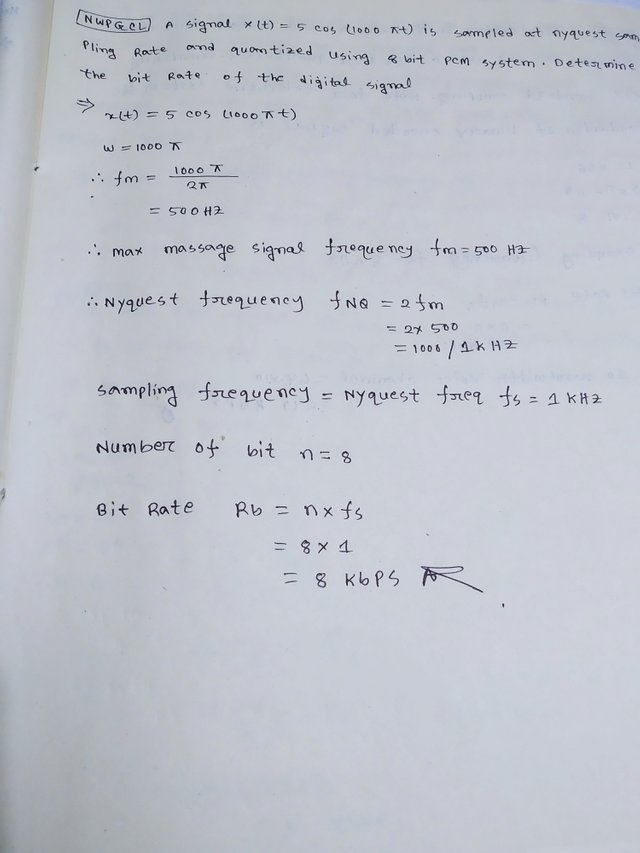 [NWPGCL] A signal x(t) = 5 cos (1000 πt) is sampled at nyquest sam
pling Rate and quantized using 8 bit PCM system. Determine
the bit Rate of the digital signal
⇒ x(t) = 5 cos (1000 π t)
w = 1000 π
∴ fm = 1000 π / 2π
= 500 HZ
∴ max massage signal frequency fm = 500 HZ
∴ Nyquest frequency fNQ = 2 fm
= 2 x 500
= 1000 / 1 k HZ
Sampling frequency = Nyquest freq fs = 1 KHZ
Number of bit n = 8
Bit Rate Rb = n x fs
= 8 x 1
= 8 KbPS